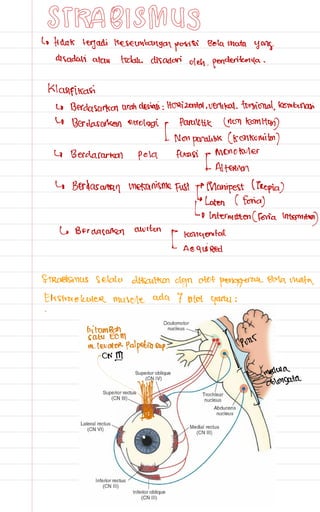 STRABISMUS
↳ tidak terjadi keseimbangan posisi bola mata yang
disadari atau tidak disadari oleh penderitanya.
Klasifikasi
↳ Berdasarkan arah deviasi : Horizontal, vertikal, torsional, kombinasi
↳ Berdasarkan etiologi Paralitik (non komitan)
Non paralitik (konkomitan)
↳ Berdasarkan Pola fiksasi Monokuler
Alternan
↳ Berdasarkan mekanisme Fusi Manipest (Tropia)
Laten (Foria)
Intermiten (Foria Intermiten)
↳ Berdasarkan awitan Kongenital
Acquired
Strabismus selalu dikaitkan dgn otot penggerak Bola mata
Ekstraokuler muscle ada 7 otot yaitu :
Oculomotor
nucleus
Pons
ditambah
satu EOM
m. levator Palpebra sup
CN III
Superior oblique
(CN IV)
medula
oblongata
Superior rectus
(CN III)
Trochlear
nucleus
Abducens
nucleus
Lateral rectus
(CN VI)
Medial rectus
(CN III)
Inferior rectus
(CN III)
Inferior oblique
(CN III)